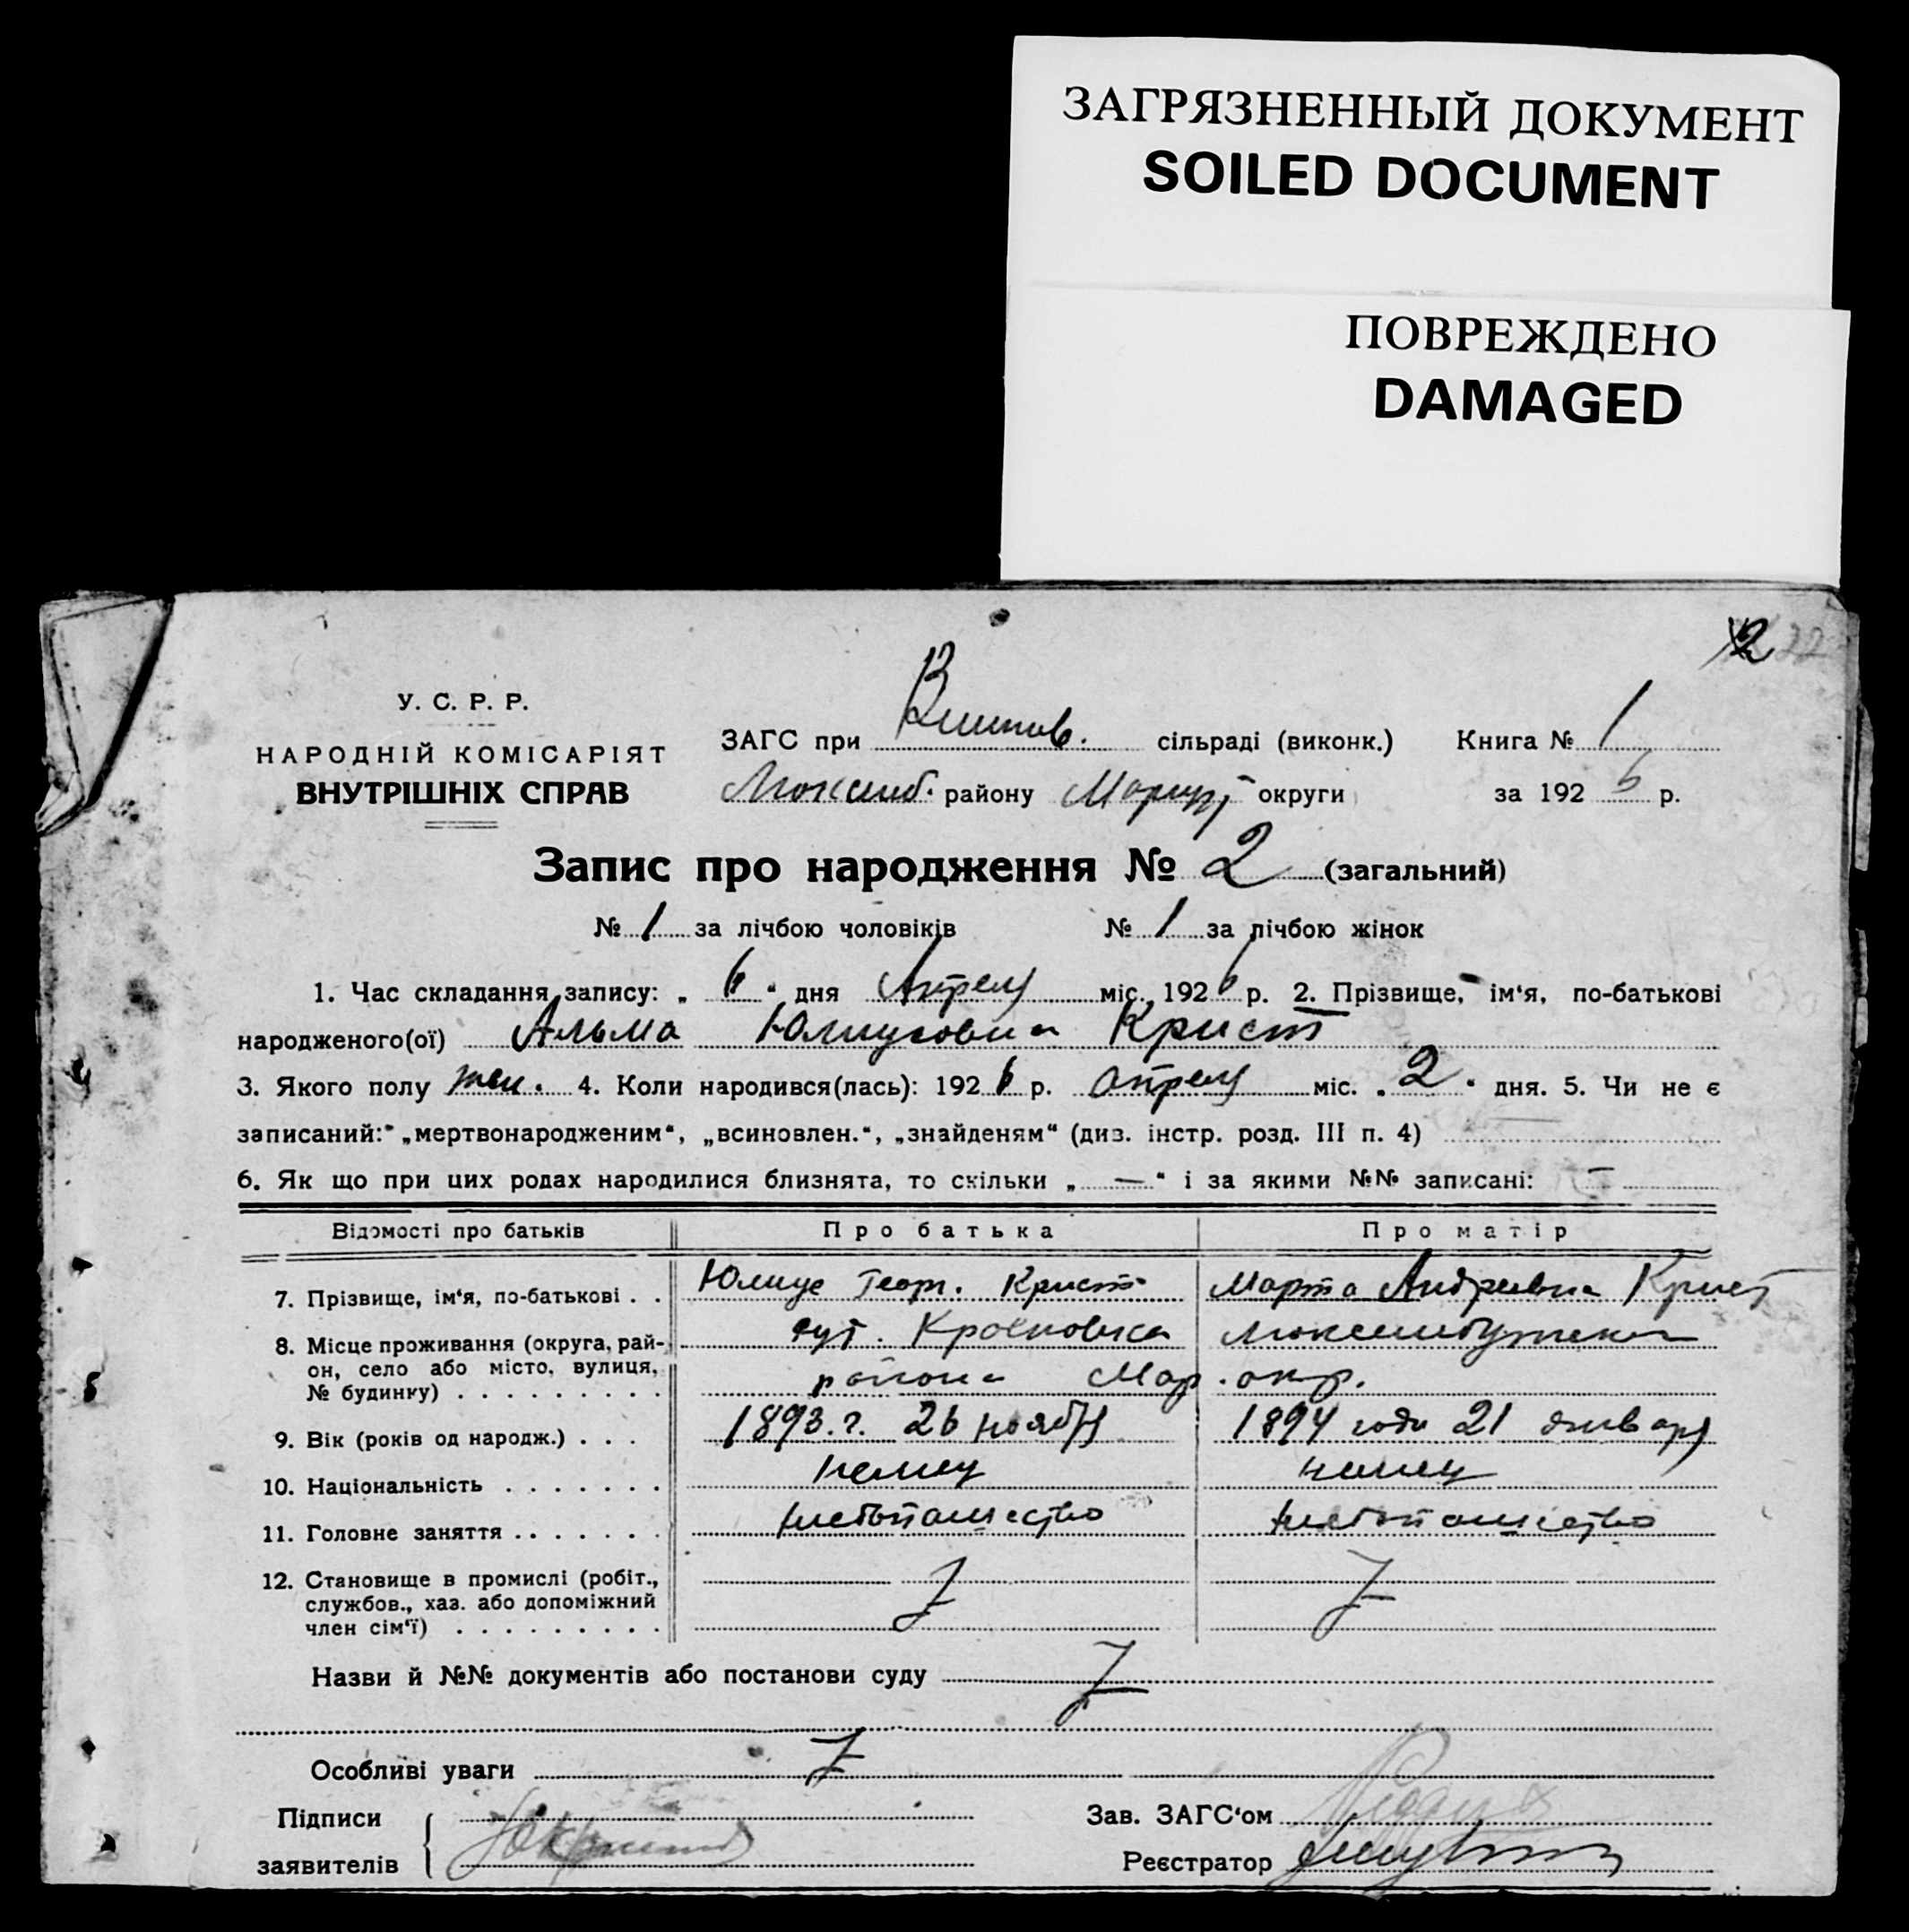 ЗАГРЯЗНЕННЫЙ ДОКУМЕНТ
SOILED DOCUMENT
ПОВРЕЖДЕНО
DAMAGED
2
У. С. Р. Р.
НАРОДНІЙ КОМІСАРІЯТ
ВНУТРІШНІХ СПРАВ
ЗАГС при сільраді (виконк.) Книга № 1
району Мариуп округи за 1926 р.
Запис про народження № 2 (загальний)
№ 1 за лічбою чоловіків № 1 за лічбою жінок
1. Час складання запису: „ 6 “ дня Апреля міс. 1926 р. 2. Прізвище, ім‘я, по-батькові
народженого(ої) Альма Юлиусовна Крист
3. Якого полу жен. 4. Коли народився(лась): 1926 р. апреля міс. „ 2 “ дня. 5. Чи не є
записаний: „мертвонародженим“, „всиновлен.“, „знайденям“ (див. інстр. розд. III п. 4)
6. Як що при цих родах народилися близнята, то скільки „ — “ і за якими №№ записані: —
Відомості про батьків Про батька Про матір
7. Прізвище, ім‘я, по-батькові . . Юлиус Георг. Крист Марта Андреевна Крист
8. Місце проживання (округа, рай-
он, село або місто, вулиця,
№ будинку) . . . . . . . . . района Мар. окр.
9. Вік (років од народж.) . . . 1893 г. 26 ноября 1894 года 21 января
10. Національність . . . . . . . немец немец
11. Головне заняття . . . . . . . хлебопашество хлебопашество
12. Становище в промислі (робіт.,
службов., хаз. або допоміжний
член сім‘ї) . . . . . . . . .
Назви й №№ документів або постанови суду
Особливі уваги
Підписи
заявителів
Зав. ЗАГС‘ом
Реєстратор